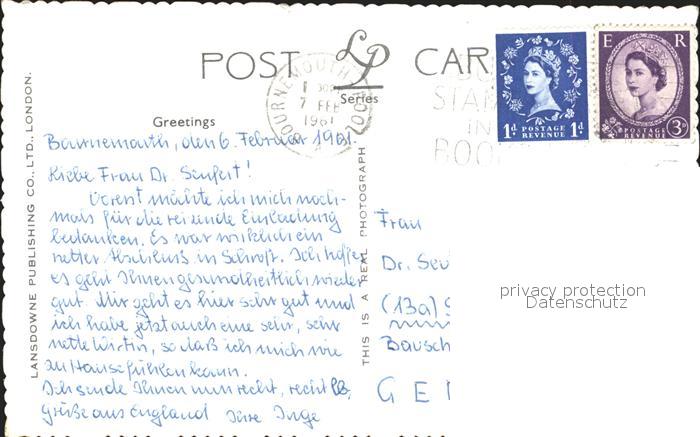 POST CARD
LP
Series
BOURNEMOUTH
7 FEB
1961
STAM
IN
BOO
1d POSTAGE 1d
REVENUE
E R
POSTAGE 3d
REVENUE
Greetings
Bournemouth, den 6. Februar 1961.
Liebe Frau Dr. Seufert!
Vorerst möchte ich mich noch-
mals für die reizende Einladung
bedanken. Es war wirklich ein
netter Abschluß in Schrofh. Ich hoffe,
es geht Ihnen gesundheitlich wieder
gut. Mir geht es hier sehr gut und
ich habe jetzt auch eine sehr, sehr
nette Wirtin, so daß ich mich wie
zu Hause fühlen kann.
Ich sende Ihnen nun recht, recht lb.
Grüße aus England Ihre Inge
LANSDOWNE PUBLISHING CO., LTD., LONDON.
THIS IS A REAL PHOTOGRAPH
Frau
Dr. Seu
(13a) S
Bausch
GE
privacy protection
Datenschutz